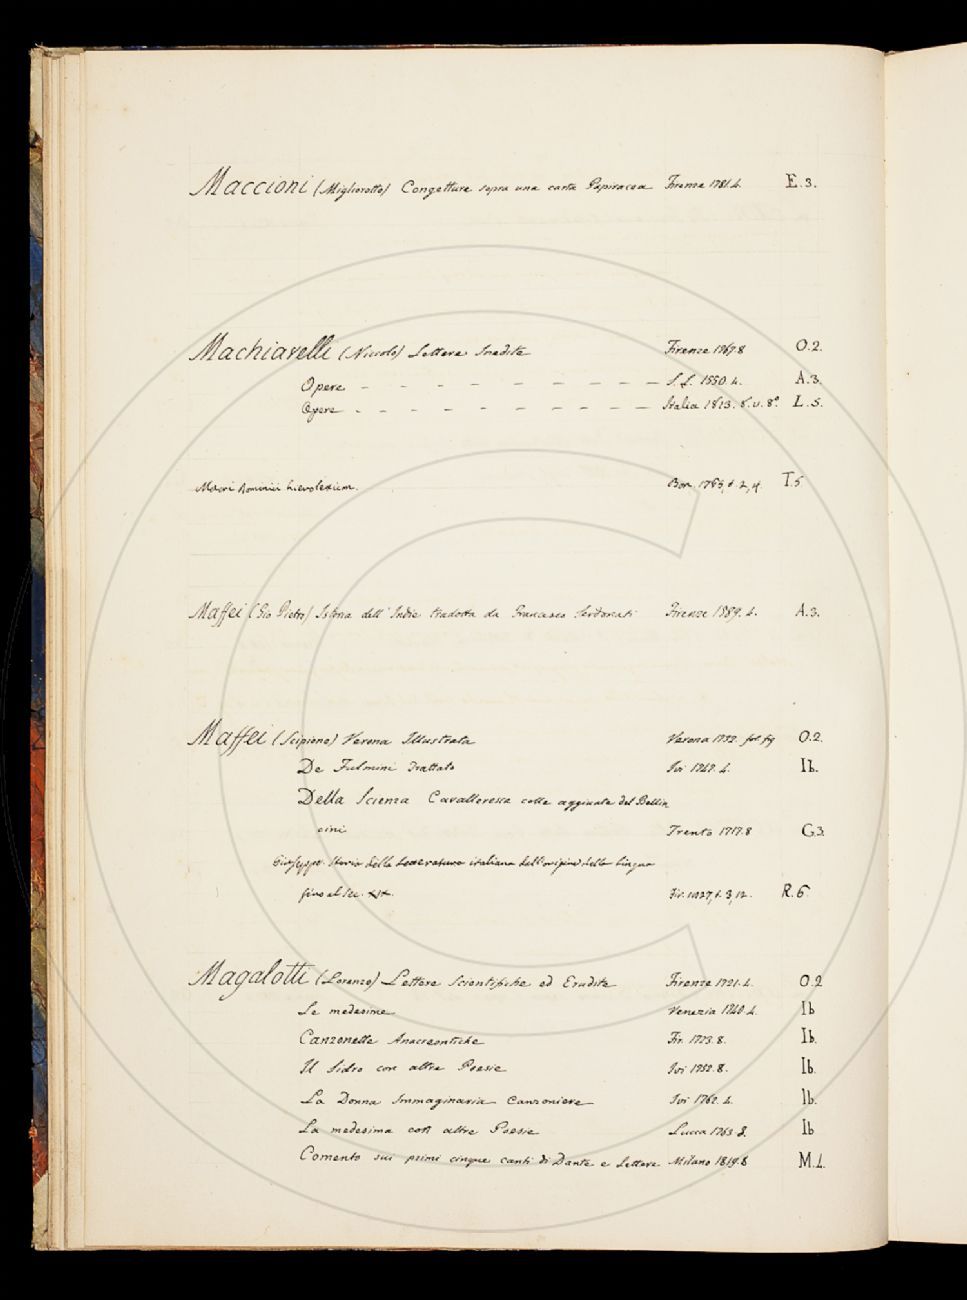 Maccioni (Migliorotto) Congetture sopra una carta Papiracea Firenze 1781. 4. E. 3.
Machiavelli (Niccolo) Lettere Inedite Firenze 1767. 8 O. 2.
Opere - - - - - - - - - - S. L. 1550. 4. A. 3.
Opere - - - - - - - - - - Italia 1813. 8. v. 8° L. 5.
Macri Dominici hierolexicon. Bon. 1765, t. 2, 4. T. 5
Maffei (Gio Pietro) Istoria dell' Indie tradotta da Francesco Serdonati Firenze 1589. 4. A. 3.
Maffei (Scipione) Verona Illustrata Verona 1732. fol fig O. 2.
De Fulmini Trattato Ivi 1747. 4. Ib.
Della Scienza Cavalleresca colle aggiunte del Bellin
cini Trento 1717. 8 G. 3.
Giuseppe. Storia della Letteratura italiana dall'origine della lingua
fino al Sec. XIX. Fir. 1827, t. 3, 12. R. 6.
Magalotti (Lorenzo) Lettere Scientifiche ed Erudite Firenze 1721. 4. O. 2
Le medesime Venezia 1740. 4. Ib
Canzonette Anacreontiche Fir. 1723. 8. Ib.
Il Sidro con altre Poesie Ivi 1752. 8. Ib.
La Donna Immaginaria Canzoniere Ivi 1762. 4. Ib.
La medesima con altre Poesie Lucca 1763 8. Ib
Comento sui primi cinque canti di Dante e Lettere Milano 1819. 8 M. 4.